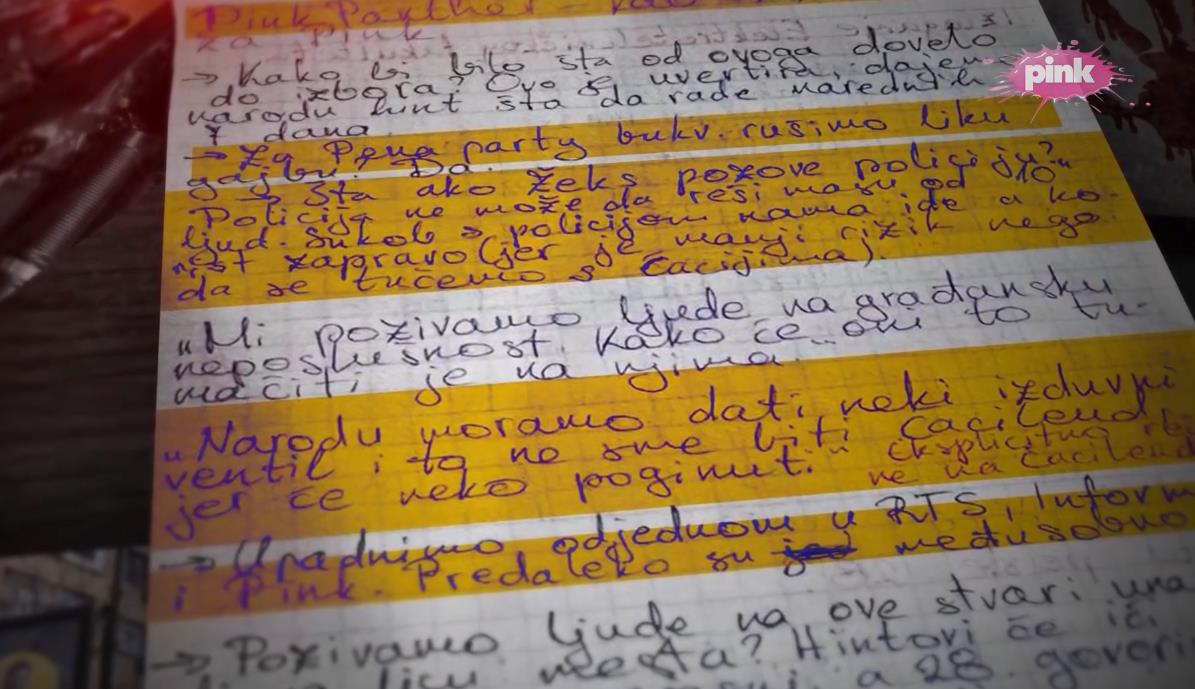 Pink Panther -
za pink
→ Kako bi bilo šta od ovoga dovelo
do izbora? Ovo je uvertira, dajemo
narodu hint šta da rade narednih
7 dana.
→ Za Pena party bukv. rušimo liku
gajbu. Da.
→ Šta ako žeks pozove policiju?
Policija ne može da reši masu od 10
ljud. Sukob s policijom nama ide a ko-
rist zapravo (jer je manji rizik nego
da se tučemo s ćacijima).
„Mi pozivamo ljude na građansku
neposlušnost. Kako će oni to tu-
mačiti je na njima.
„Narodu moramo dati neki izduvni
ventil i to ne sme biti ćacilend
jer će neko poginut." Eksplicitno
ne na ćacilend
→ Upadnimo odjednom u RTS, Inform
i Pink. Predaleko su međusobno
→ Pozivamo ljude na ove stvari
licu mesta? Hintovi će ići
a 28. govori
pink